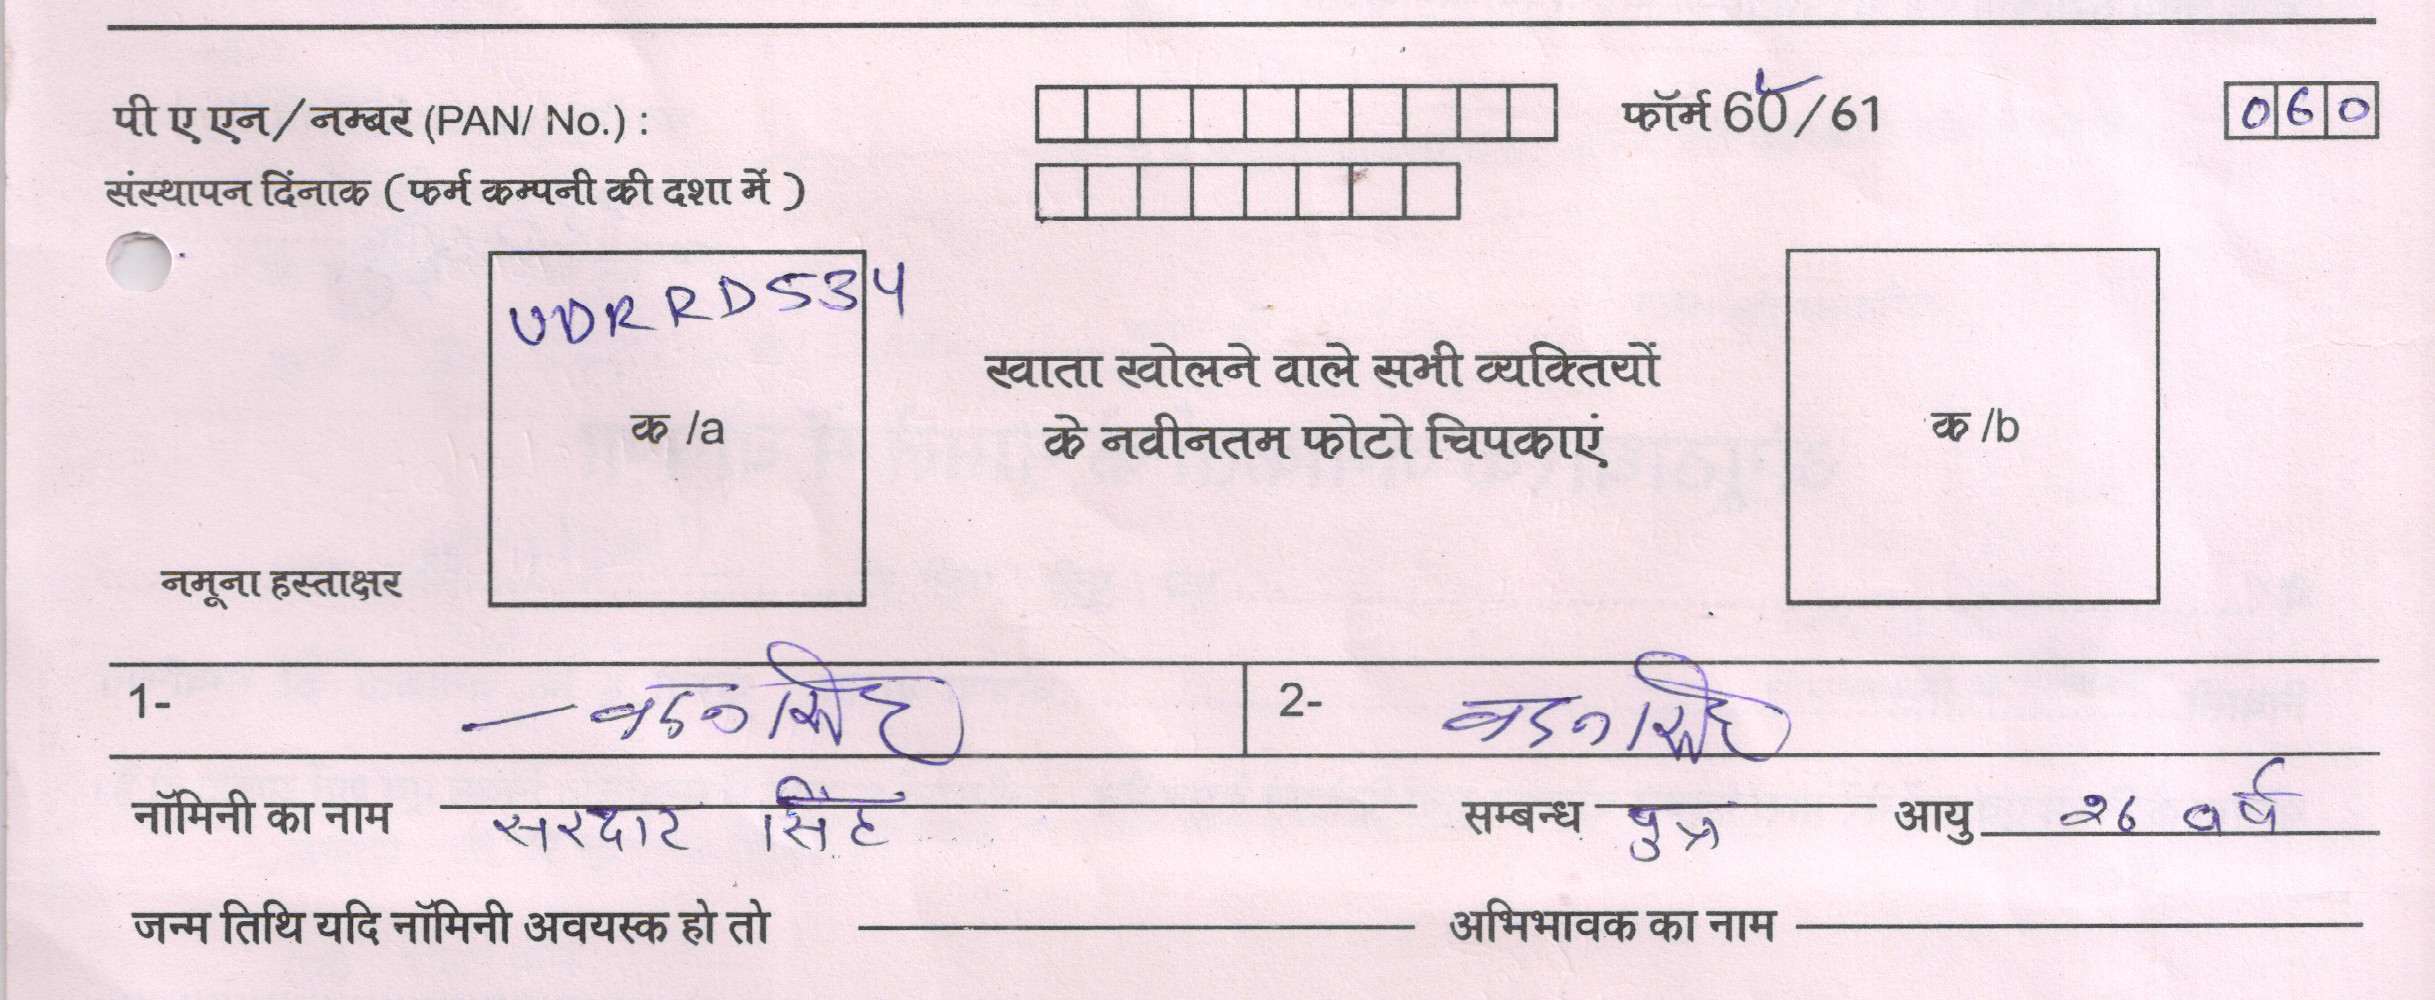 पी ए एन / नम्बर (PAN/ No.) : फॉर्म 60/61 060
संस्थापन दिंनाक ( फर्म कम्पनी की दशा में )
UDRRD534
खाता खोलने वाले सभी व्यक्तियों
के नवीनतम फोटो चिपकाएं
क /a क /b
नमूना हस्ताक्षर
1- सिंह 2- सिंह
नॉमिनी का नाम सरदार सिंह सम्बन्ध पुत्र आयु 26 वर्ष
जन्म तिथि यदि नॉमिनी अवयस्क हो तो अभिभावक का नाम